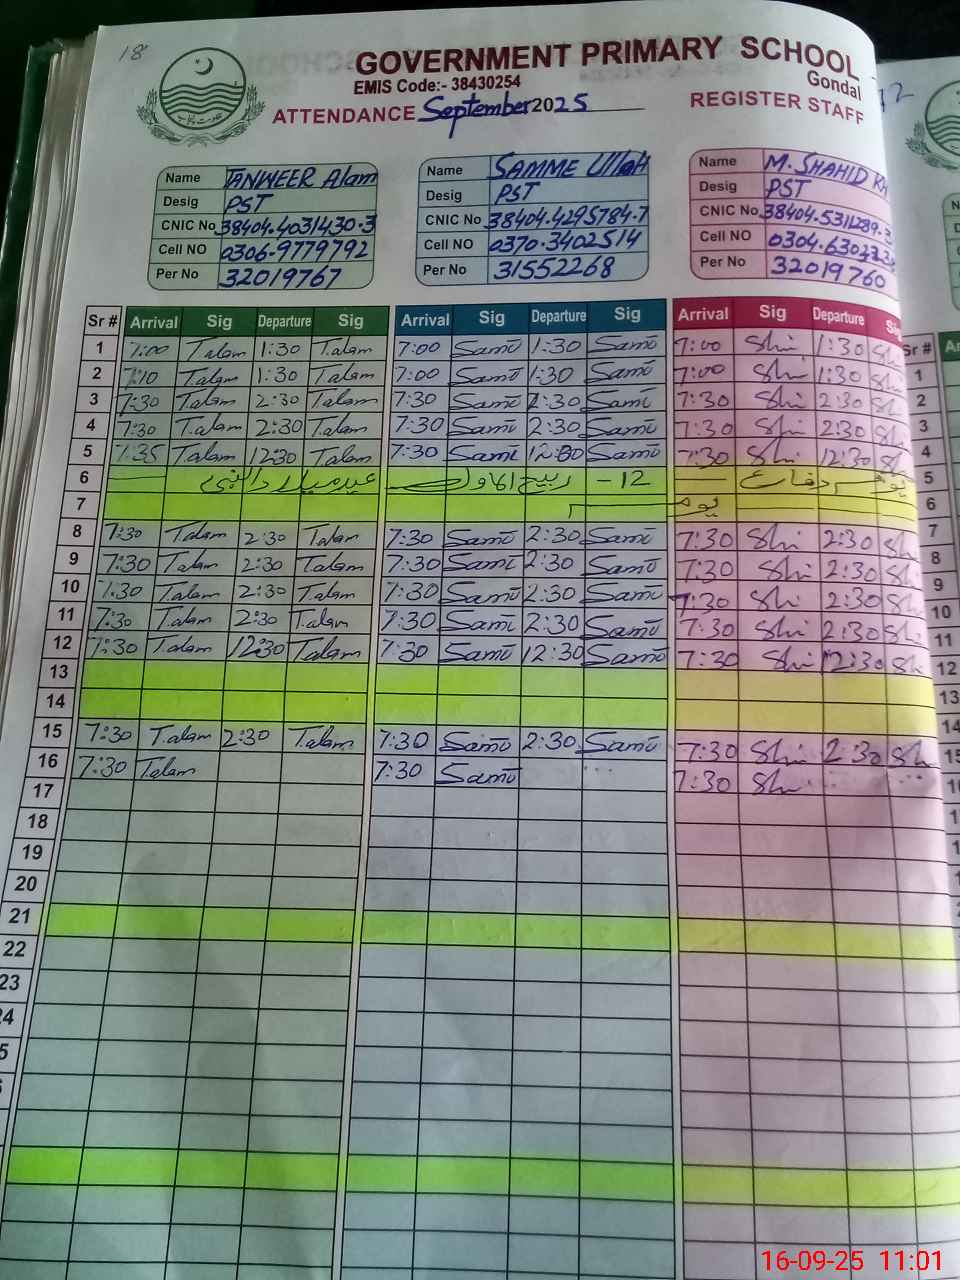 18
GOVERNMENT PRIMARY SCHOOL
Gondal
EMIS Code:- 38430254
ATTENDANCE September 2025 REGISTER STAFF
Name TANWEER Alam
Desig PST
CNIC No 38404.4031430.3
Cell NO 0306-9779792
Per No 32019767
Name SAMME Ullah
Desig PST
CNIC No 38404.4295784.7
Cell NO 0370.3402514
Per No 31552268
Name M. SHAHID
Desig PST
CNIC No 38404.5311289.
Cell NO
Per No 32019760
Sr # Arrival Sig Departure Sig Arrival Sig Departure Sig Arrival Sig Departure Sig
1 7:00 T.alam 1:30 T.alam 7:00 Samū 1:30 Samū 7:00 Shi 1:30 Sh
2 7:10 T.alam 1:30 T.alam 7:00 Samū 1:30 Samū 7:00 Shi 1:30 Sh
3 7:30 T.alam 2:30 T.alam 7:30 Samū 2:30 Samū 7:30 Shi 2:30 Sh
4 7:30 T.alam 2:30 T.alam 7:30 Samū 2:30 Samū 7:30 Shi 2:30 Sh
5 7:35 T.alam 12:30 T.alam 7:30 Samū 12:30 Samū 7:30 Shi 12:30 Sh
6 عید میلاد النبی ربیع الاول - 12 یوم دفاع
7 یوم
8 7:30 T.alam 2:30 T.alam 7:30 Samū 2:30 Samū 7:30 Shi 2:30 Sh
9 7:30 T.alam 2:30 T.alam 7:30 Samū 2:30 Samū 7:30 Shi 2:30 Sh
10 7:30 T.alam 2:30 T.alam 7:30 Samū 2:30 Samū 7:30 Shi 2:30 Sh
11 7:30 T.alam 2:30 T.alam 7:30 Samū 2:30 Samū 7:30 Shi 2:30 Sh
12 7:30 T.alam 12:30 T.alam 7:30 Samū 12:30 Samū 7:30 Shi 12:30 Sh
13
14
15 7:30 T.alam 2:30 T.alam 7:30 Samū 2:30 Samū 7:30 Shi 2:30 Sh
16 7:30 T.alam 7:30 Samū 7:30 Shi
17
18
19
20
21
22
23
16-09-25 11:01